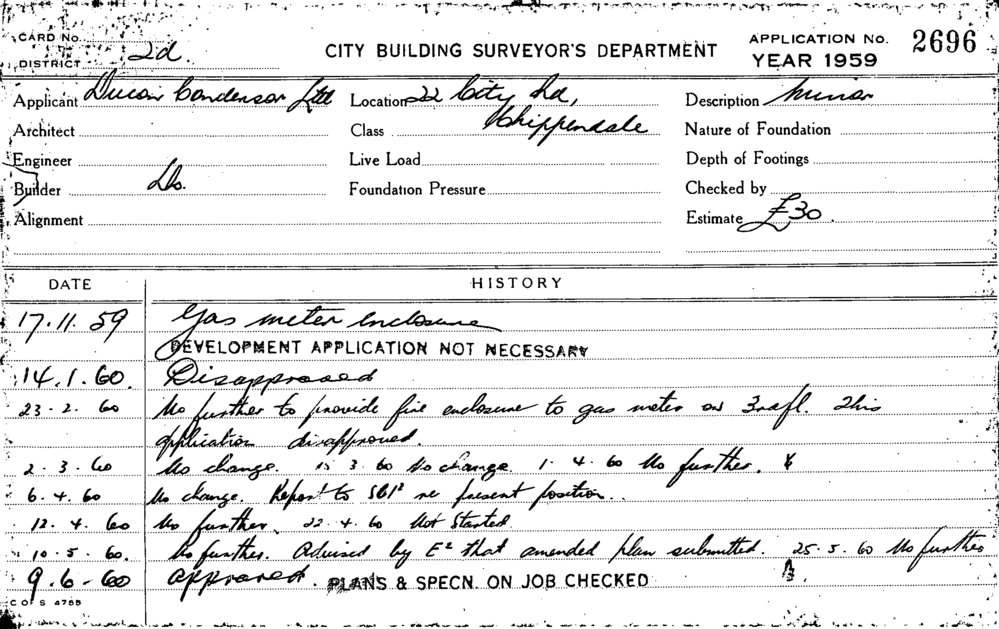 CARD No.
DISTRICT 2d.
CITY BUILDING SURVEYOR'S DEPARTMENT
APPLICATION No. 2696
YEAR 1959
Applicant Ducon Condensor Ltd Location 22 City Rd, Description Minor
Architect Class Chippendale Nature of Foundation
Engineer Live Load Depth of Footings
Builder Do. Foundation Pressure Checked by
Alignment Estimate £30
DATE HISTORY
17.11.59 Gas meter enclosure
DEVELOPMENT APPLICATION NOT NECESSARY
14.1.60. Disapproved
23-2.60 No further to provide fire enclosure to gas meter on 3rd fl. This
application disapproved.
2.3.60 No change. 15 3.60 No change. 1.4.60 No further.
6.4.60 No change. Report to SBI re present position..
12.4.60 No further. 22.4.60 Not Started.
10.5.60. No further. Advised by E² that amended plan submitted. 25.5.60 No further
9.6-60 Approved. PLANS & SPECN. ON JOB CHECKED
C OF S 4755